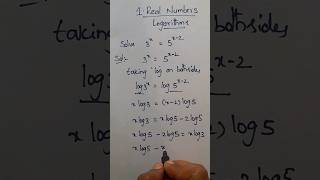 1. Real Numbers
Logarithms
Solve 3^x = 5^{x-2}
Sol: 3^x = 5^{x-2}
taking log on both sides
log 3^x = log 5^{x-2}
x log 3 = (x-2) log 5
x log 3 = x log 5 - 2 log 5
x log 5 - 2 log 5 = x log 3
x log 5 - x